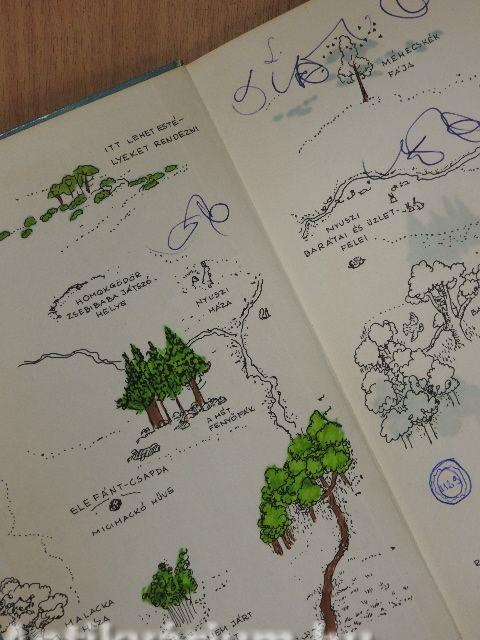 ITT LEHET ESTÉ-
LYEKET RENDEZNI
HOMOKGÖDÖR
ZSEBIBABA JÁTSZÓ
HELYE
NYUSZI
HÁZA
A HÉT
FENYŐFÁK
ELEFÁNT-CSAPDA
MICIMACKÓ MŰVE
MALACKA
HÁZA
JÁRT
MÉHECSKÉK
FÁJA
NYUSZI
BARÁTAI ÉS ÜZLET-
FELEI
antikvarium.hu